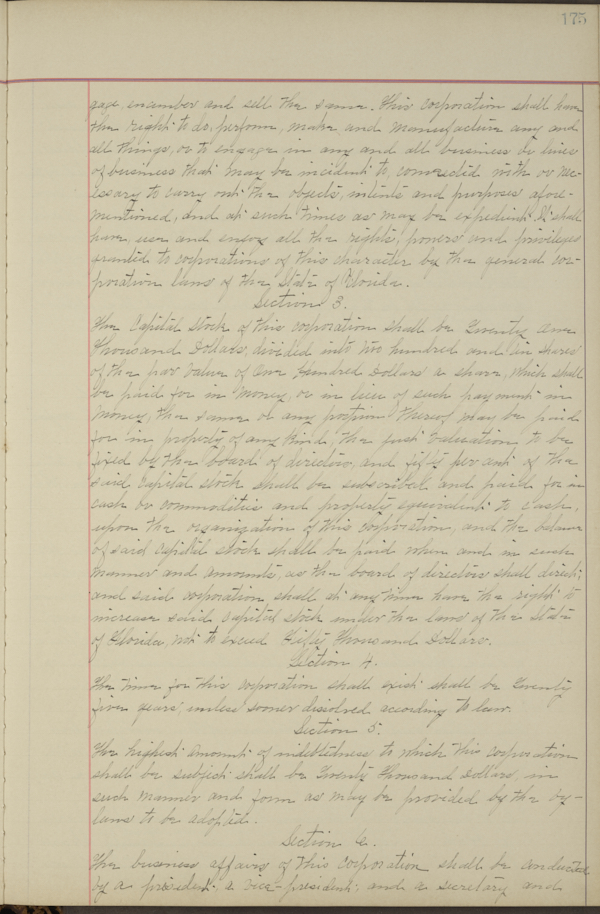 175
gage, encumber and sell the same. This corporation shall have
the right to do, perform, make and manufacture any and
all things, or to engage in any and all business or lines
of business that may be incident to, connected with or nec-
essary to carry out the objects, intents and purposes afore-
mentioned, and at such times as may be expedient. It shall
have, use and enjoy all the rights, powers and privileges
granted to corporations of this character by the general cor-
poration laws of the State of Florida.
Section 3.
The Capital stock of this corporation shall be Twenty one
Thousand Dollars, divided into two hundred and ten shares
of the par value of One Hundred Dollars a share, which shall
be paid for in money, or in lieu of such payment in
money, the same or any portion thereof may be paid
for in property of any kind, the just valuation to be
fixed by the board of directors, and fifty per cent of the
said Capital stock shall be subscribed and paid for in
cash or commodities and property equivalent to cash,
upon the organization of this corporation, and the balance
of said capital stock shall be paid when and in such
manner and amounts, as the board of directors shall direct;
and said corporation shall at any time have the right to
increase said capital stock under the laws of the State
of Florida, not to exceed Fifty Thousand Dollars.
Section 4.
The time for this corporation shall exist shall be Twenty
five years, unless sooner dissolved according to law.
Section 5.
The highest amount of indebtedness to which this corporation
shall be subject shall be Twenty Thousand Dollars, in
such manner and form as may be provided by the by-
laws to be adopted.
Section 6.
The business affairs of this Corporation shall be conducted
by a president, a vice-president, and a secretary and